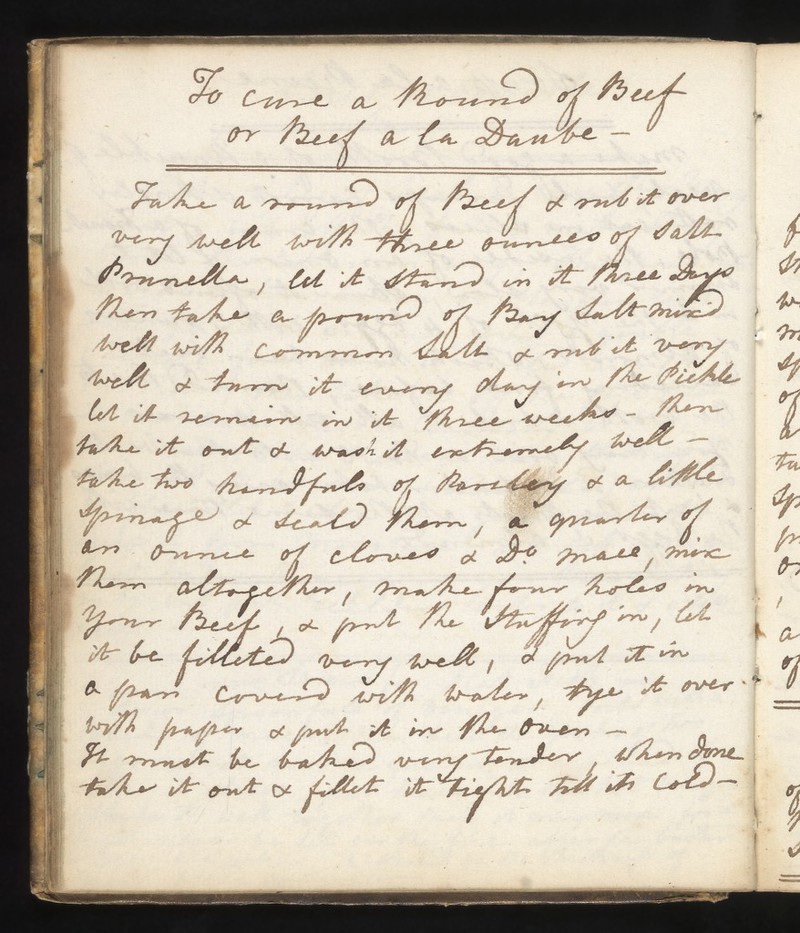 To cure a Round of Beef
or Beef a la Daube –
Take a round of Beef & rub it over
very well with three ounces of Salt
Prunella, let it stand in it three Days
then take a pound of Bay Salt mix'd
well with common Salt & rub it very
well & turn it every day in the Pickle
let it remain in it three weeks – then
take it out & wash it extremely well –
take two handfuls of Parsley & a little
Spinage & scald them, a quarter of
an ounce of cloves & Do. mace, mix
them altogether, make four holes in
your Beef, & put the Stuffing in, let
it be filleted very well, & put it in
a pan coverd with water, tye it over
with paper & put it in the oven –
It must be baked very tender, when done
take it out & fillet it tight till its cold –